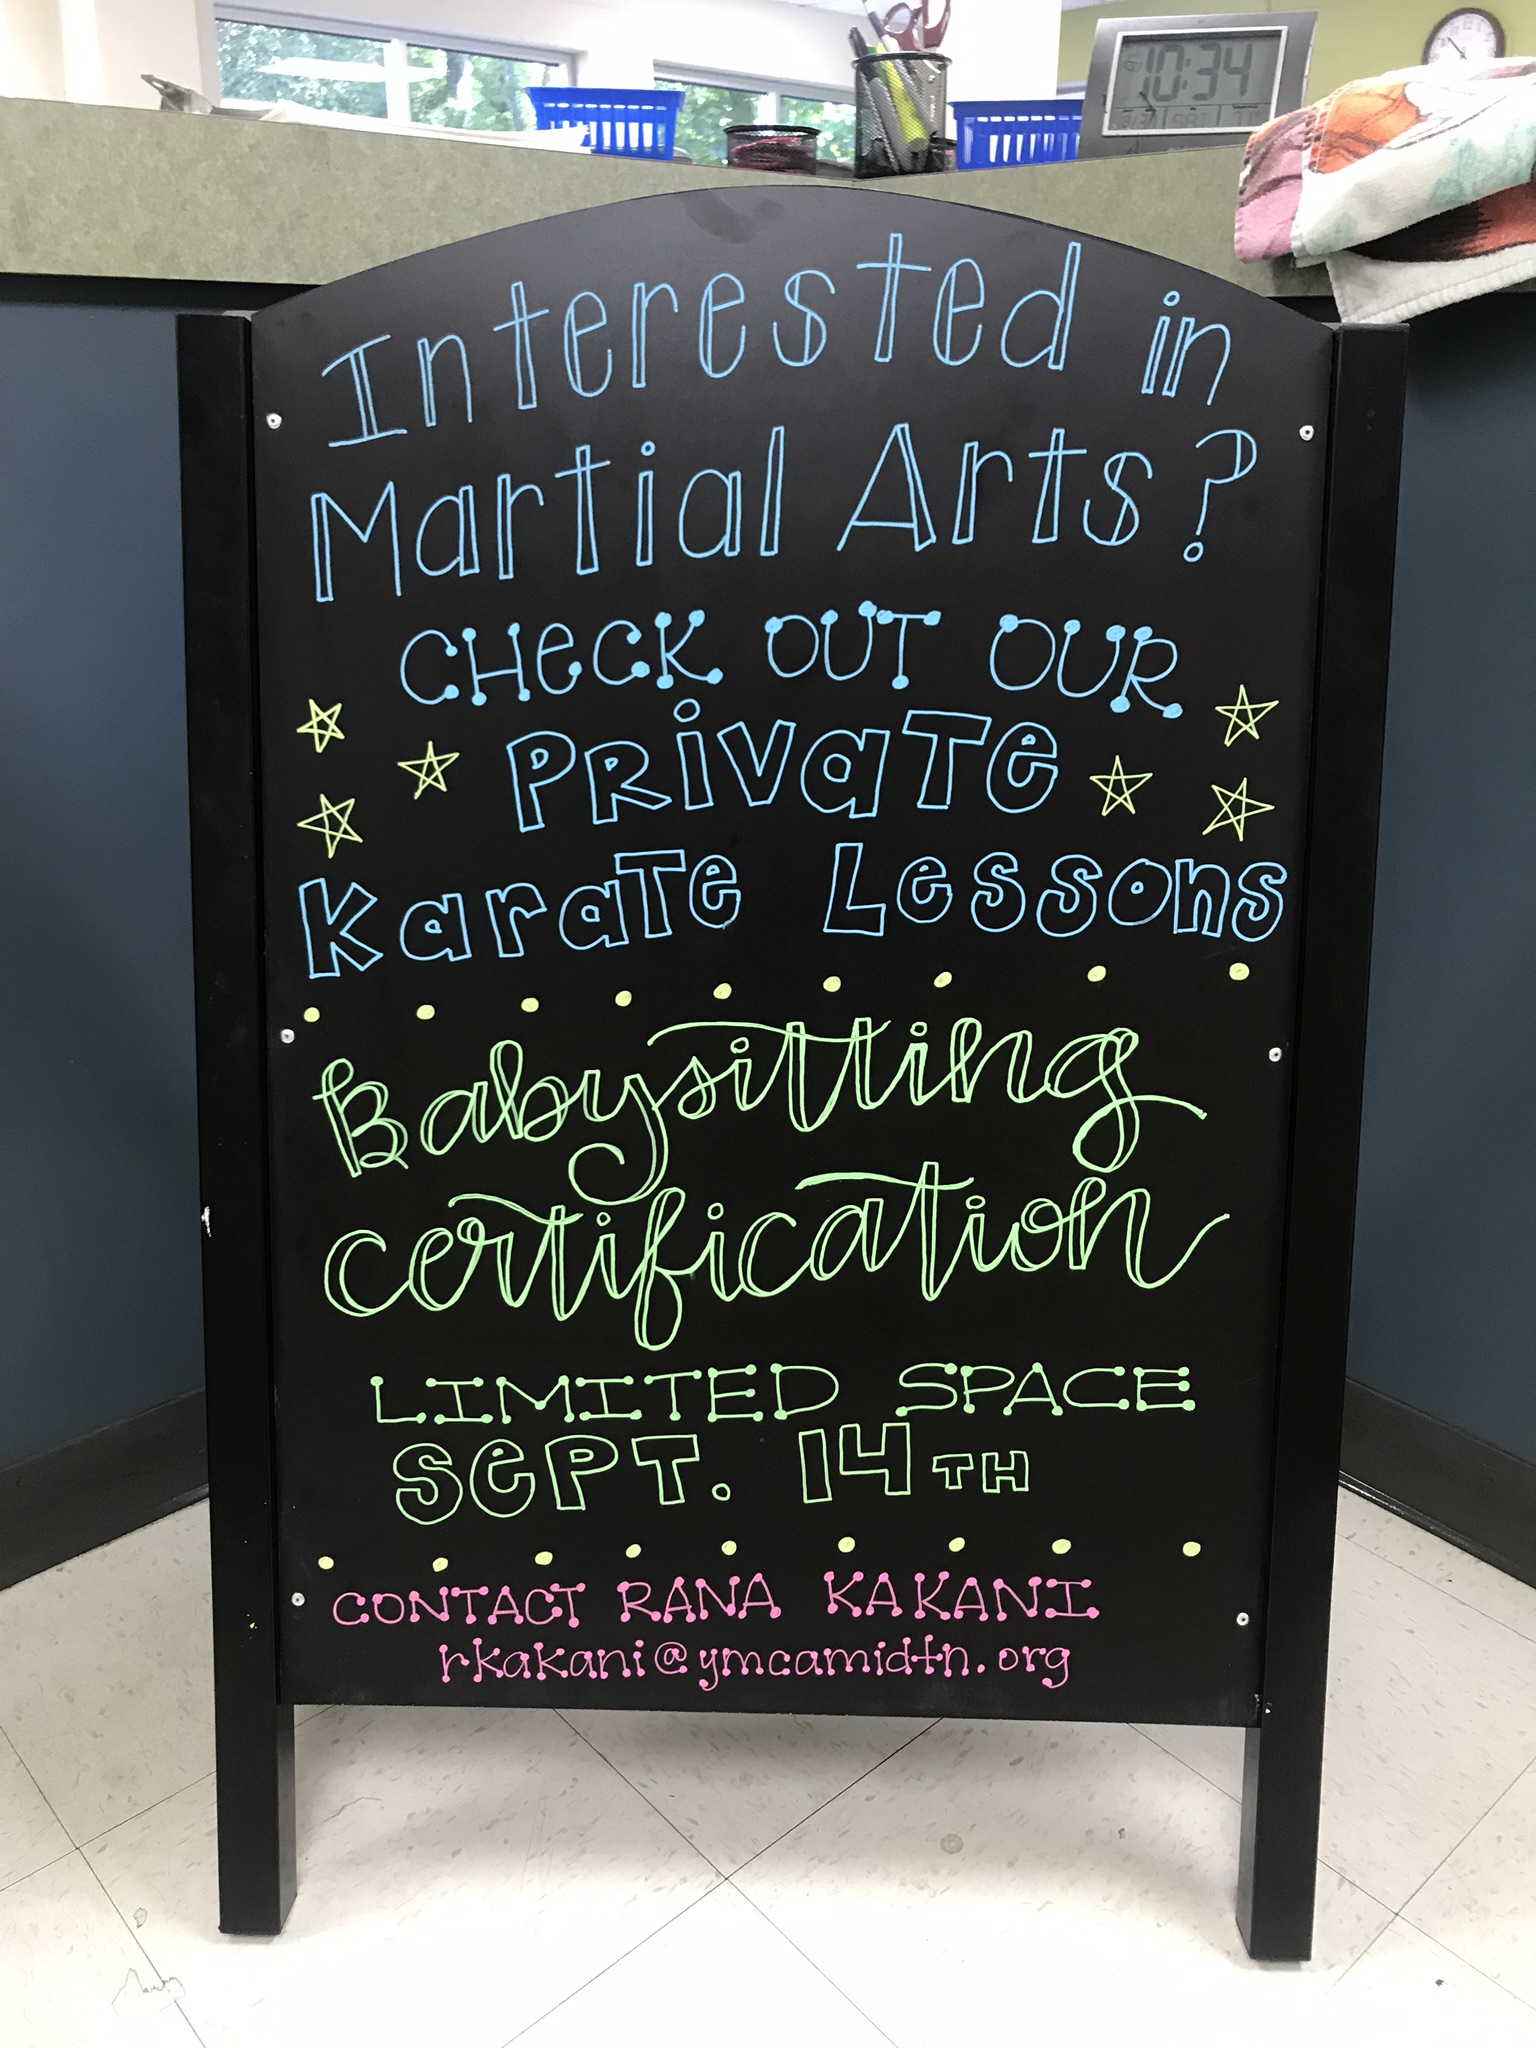 10:34
Interested in
Martial Arts?
CHeCK OUT OUR
PRivaTe
KaraTe Lessons
Babysitting
certification
LIMITED SPACE
SePT. 14TH
CONTACT RANA KAKANI
rkakani@ymcamidtn.org